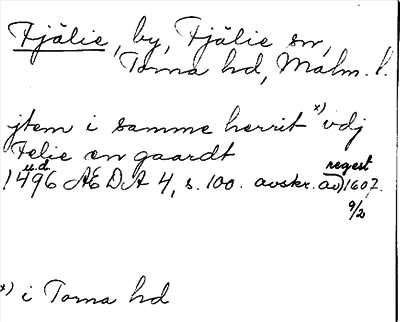 Fjälie, by, Fjälie sn,
Torna hd, Malm. l.
jtem i samme herrit x) vdj
Felie en gaardt
u.d. regest
1496 ÆDA 4, s. 100. avskr. av 1607.
9/2
x) i Torna hd